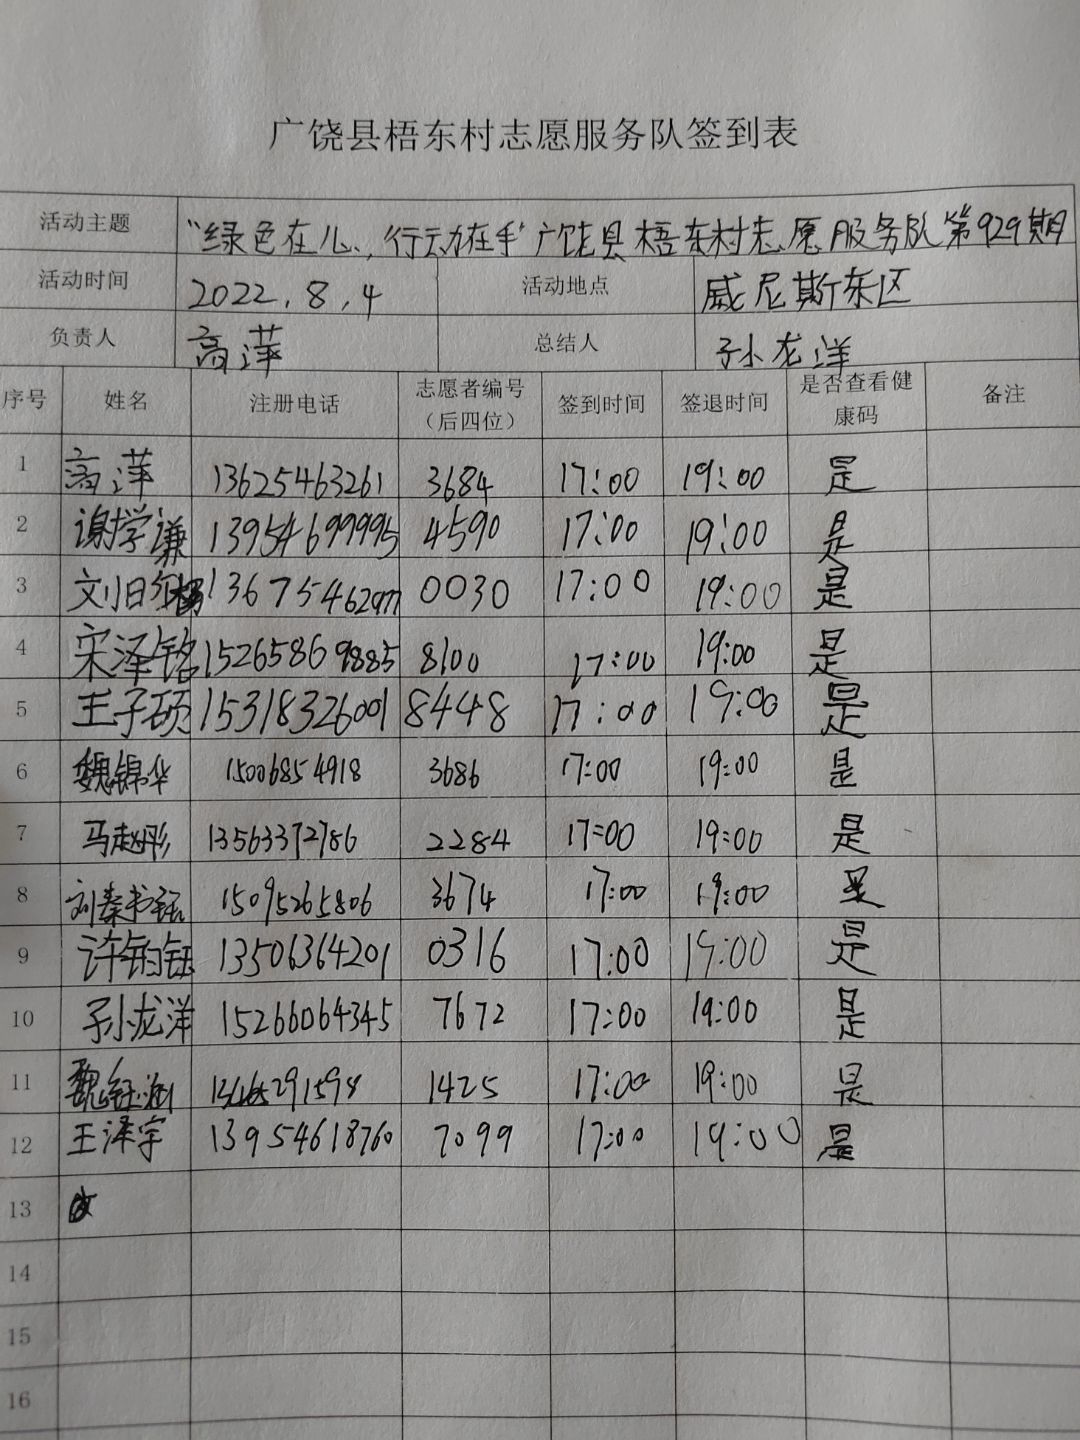 广饶县梧东村志愿服务队签到表
活动主题 “绿色在心，行动在手”广饶县梧东村志愿服务队第929期
活动时间 2022.8.4 活动地点 威尼斯东区
负责人 高萍 总结人 孙龙洋
序号 姓名 注册电话 志愿者编号（后四位） 签到时间 签退时间 是否查看健康码 备注
1 高萍 13625463261 3684 17:00 19:00 是
2 谢学谦 13954699995 4590 17:00 19:00 是
3 0030 17:00 19:00 是
4 宋泽铭 15265869885 8100 17:00 19:00 是
5 王子硕 15318326001 8448 17:00 19:00 是
6 魏锦华 15006854918 3686 17:00 19:00 是
7 马赵彤 13563372786 2284 17:00 19:00 是
8 15095265806 3674 17:00 19:00 是
9 许钧钰 13506364201 0316 17:00 19:00 是
10 孙龙洋 15266064345 7672 17:00 19:00 是
11 1425 17:00 19:00 是
12 王泽宇 13954618760 7099 17:00 19:00 是
13
14
15
16